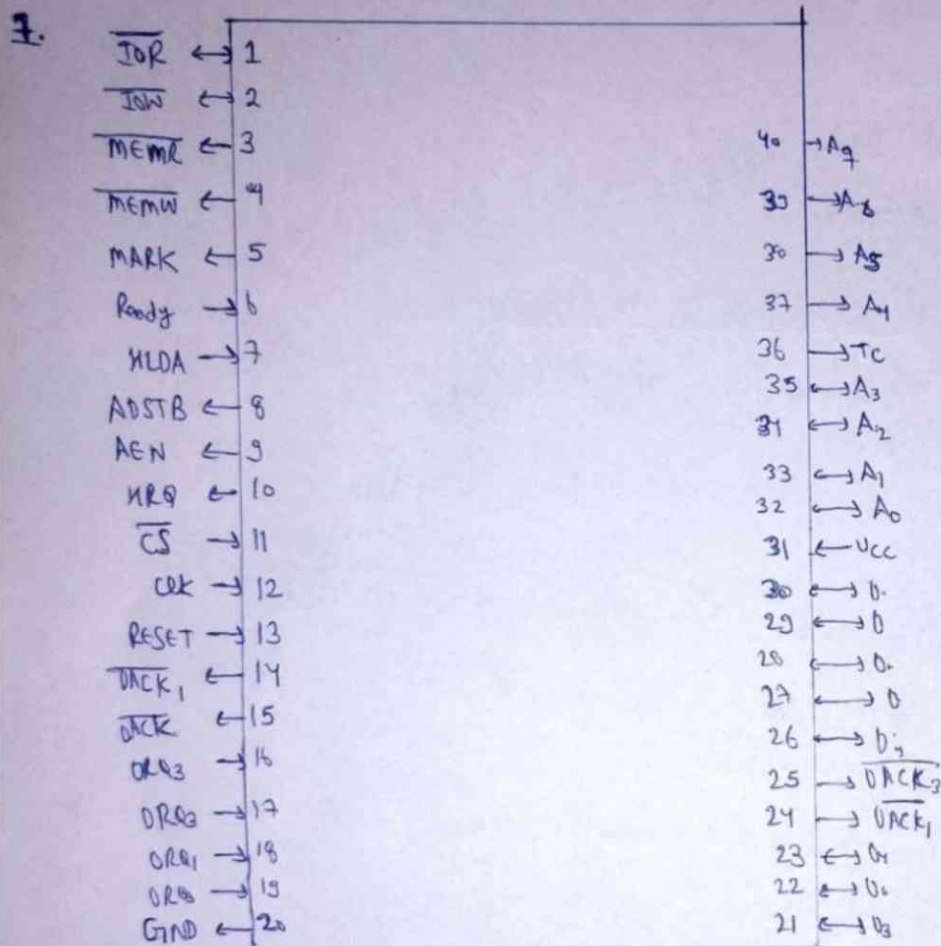 1.
I̅O̅R̅ ↔ 1
I̅O̅W̅ ↔ 2
M̅E̅M̅R̅ ← 3
M̅E̅M̅W̅ ← 4
MARK ← 5
Ready → 6
HLDA → 7
ADSTB ← 8
AEN ← 9
HRQ ← 10
C̅S̅ → 11
CLK → 12
RESET → 13
D̅A̅C̅K̅₁ ← 14
D̅A̅C̅K̅ ← 15
DRQ3 → 16
DRQ3 → 17
DRQ1 → 18
DRQ → 19
GND ← 20
40 → A₇
39 → A₆
38 → A5
37 → A₄
36 → TC
35 ↔ A₃
34 ↔ A₂
33 ↔ A₁
32 ↔ A₀
31 ← VCC
30 ↔ D.
29 ↔ D
28 ↔ D.
27 ↔ D
26 ↔
25 → D̅A̅C̅K̅₃
24 → D̅A̅C̅K̅₁
23 ↔
22 ↔
21 ↔ D₃